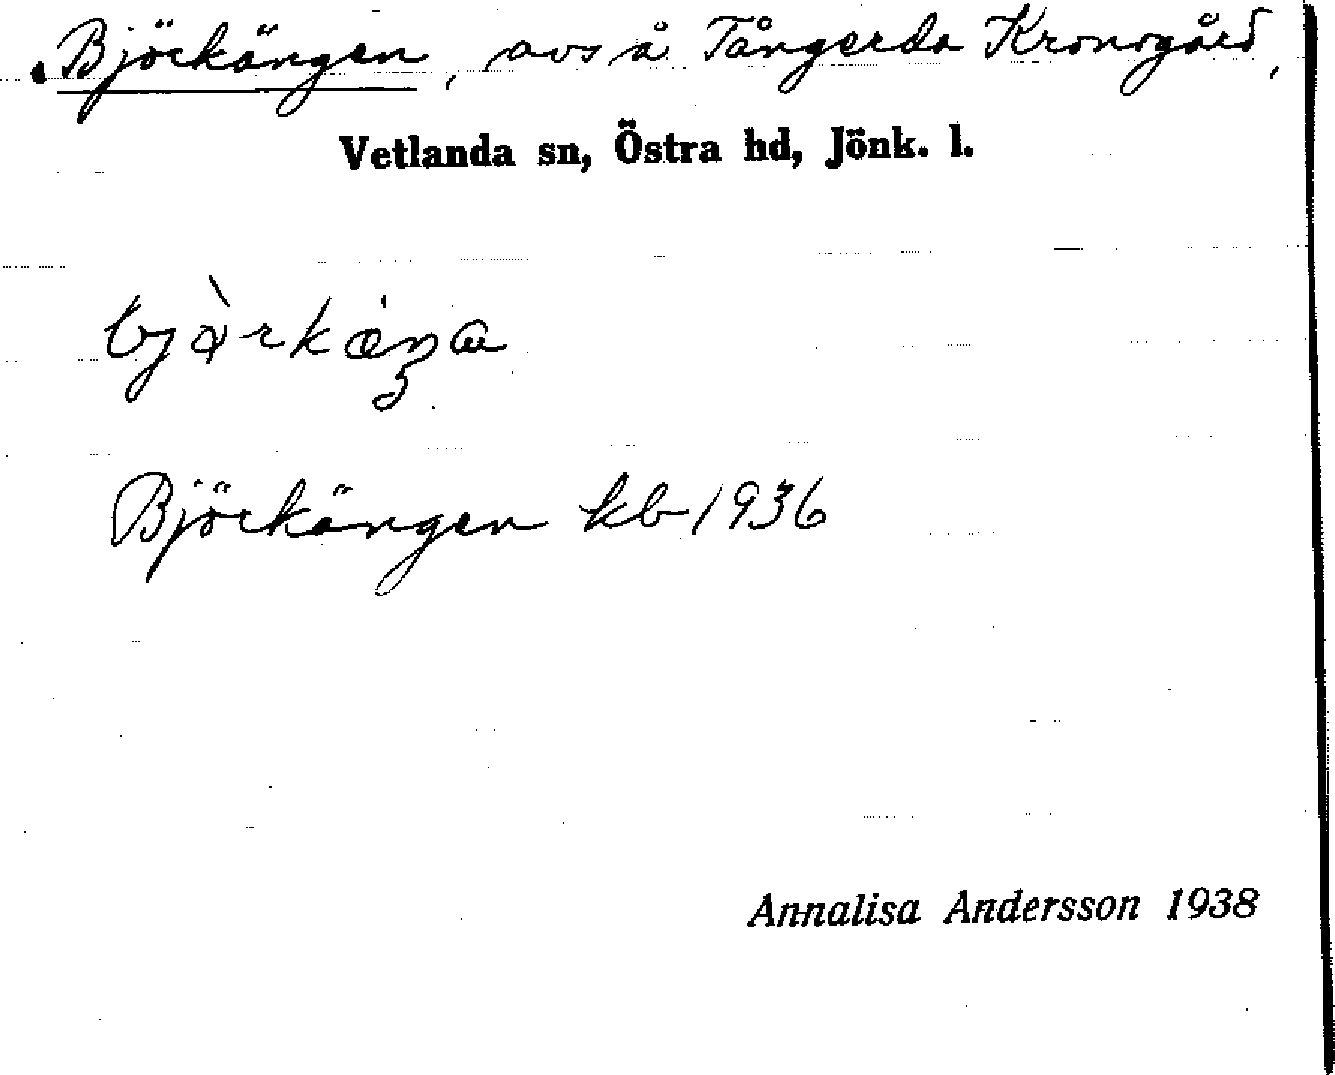 Björkängen, avs å Tångerda Kronogård,
Vetlanda sn, Östra hd, Jönk. l.
Björkängen kb 1936
Annalisa Andersson 1938